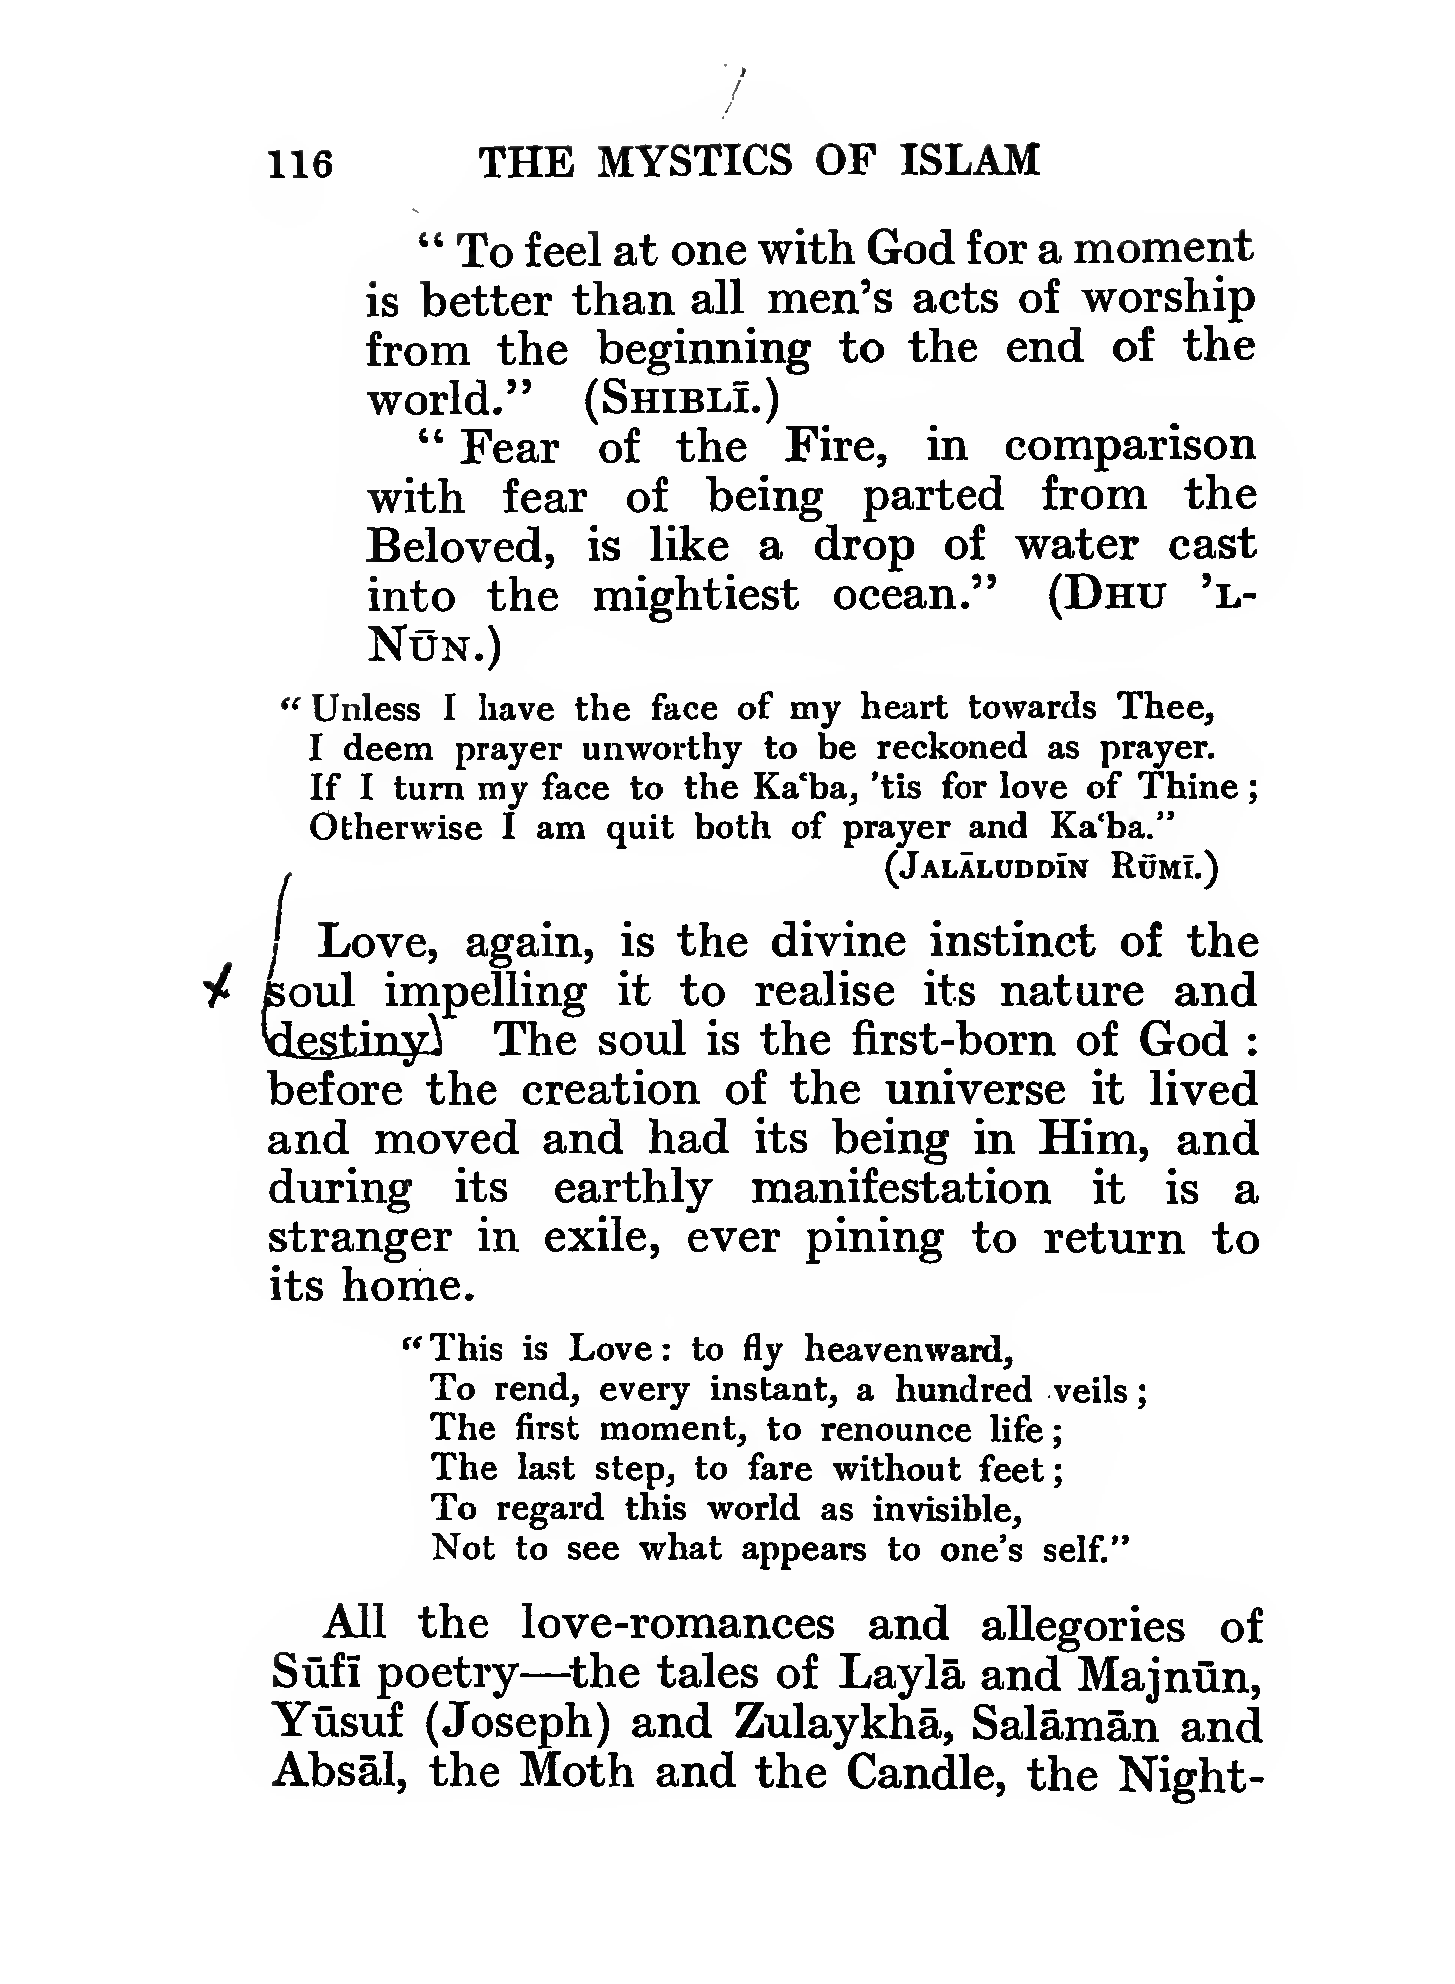 116 THE MYSTICS OF ISLAM
“ To feel at one with God for a moment
is better than all men’s acts of worship
from the beginning to the end of the
world.” (SHIBLĪ.)
“ Fear of the Fire, in comparison
with fear of being parted from the
Beloved, is like a drop of water cast
into the mightiest ocean.” (DHU ’L-
NŪN.)
“ Unless I have the face of my heart towards Thee,
I deem prayer unworthy to be reckoned as prayer.
If I turn my face to the Ka‘ba, ’tis for love of Thine ;
Otherwise I am quit both of prayer and Ka‘ba.”
(JALĀLUDDĪN RŪMĪ.)
Love, again, is the divine instinct of the
soul impelling it to realise its nature and
destiny. The soul is the first-born of God :
before the creation of the universe it lived
and moved and had its being in Him, and
during its earthly manifestation it is a
stranger in exile, ever pining to return to
its home.
“ This is Love : to fly heavenward,
To rend, every instant, a hundred veils ;
The first moment, to renounce life ;
The last step, to fare without feet ;
To regard this world as invisible,
Not to see what appears to one’s self.”
All the love-romances and allegories of
Sūfī poetry—the tales of Laylā and Majnūn,
Yūsuf (Joseph) and Zulaykhā, Salāmān and
Absāl, the Moth and the Candle, the Night-